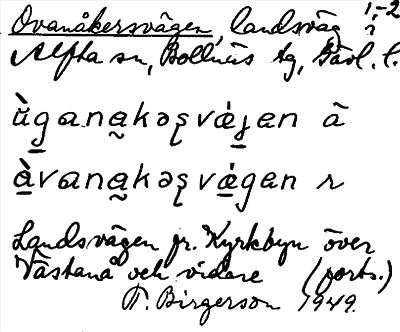 Ovanåkersvägen, landsväg 1,-2
i
Alfta sn, Bollnäs tg, Gävl. l.
ù̱gana̰kəʂvǽɟen ā
à̱vana̰kəʂvǽ̱gen r
Landsvägen fr. Kyrkbyn över
Västanå och vidare (forts.)
T. Birgerson 1949.